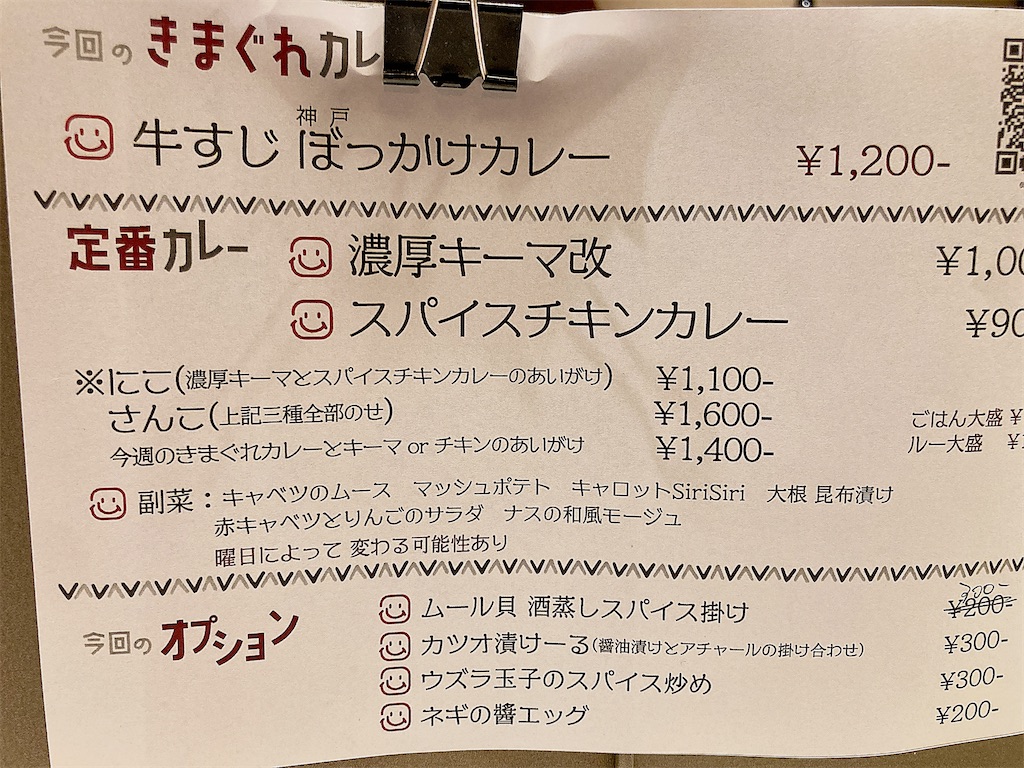 今回の きまぐれカレ
神戸
牛すじ ぼっかけカレー ¥1,200-
定番カレー
濃厚キーマ改 ¥1,00
スパイスチキンカレー ¥90
※にこ(濃厚キーマとスパイスチキンカレーのあいがけ) ¥1,100-
さんこ(上記三種全部のせ) ¥1,600-
ごはん大盛 ¥
今週のきまぐれカレーとキーマ or チキンのあいがけ ¥1,400-
ルー大盛 ¥1
副菜：キャベツのムース マッシュポテト キャロットSiriSiri 大根 昆布漬け
赤キャベツとりんごのサラダ ナスの和風モージュ
曜日によって 変わる可能性あり
今回の オプション
ムール貝 酒蒸しスパイス掛け ¥200-
カツオ漬けーる(醤油漬けとアチャールの掛け合わせ) ¥300-
ウズラ玉子のスパイス炒め ¥300-
ネギの醬エッグ ¥200-